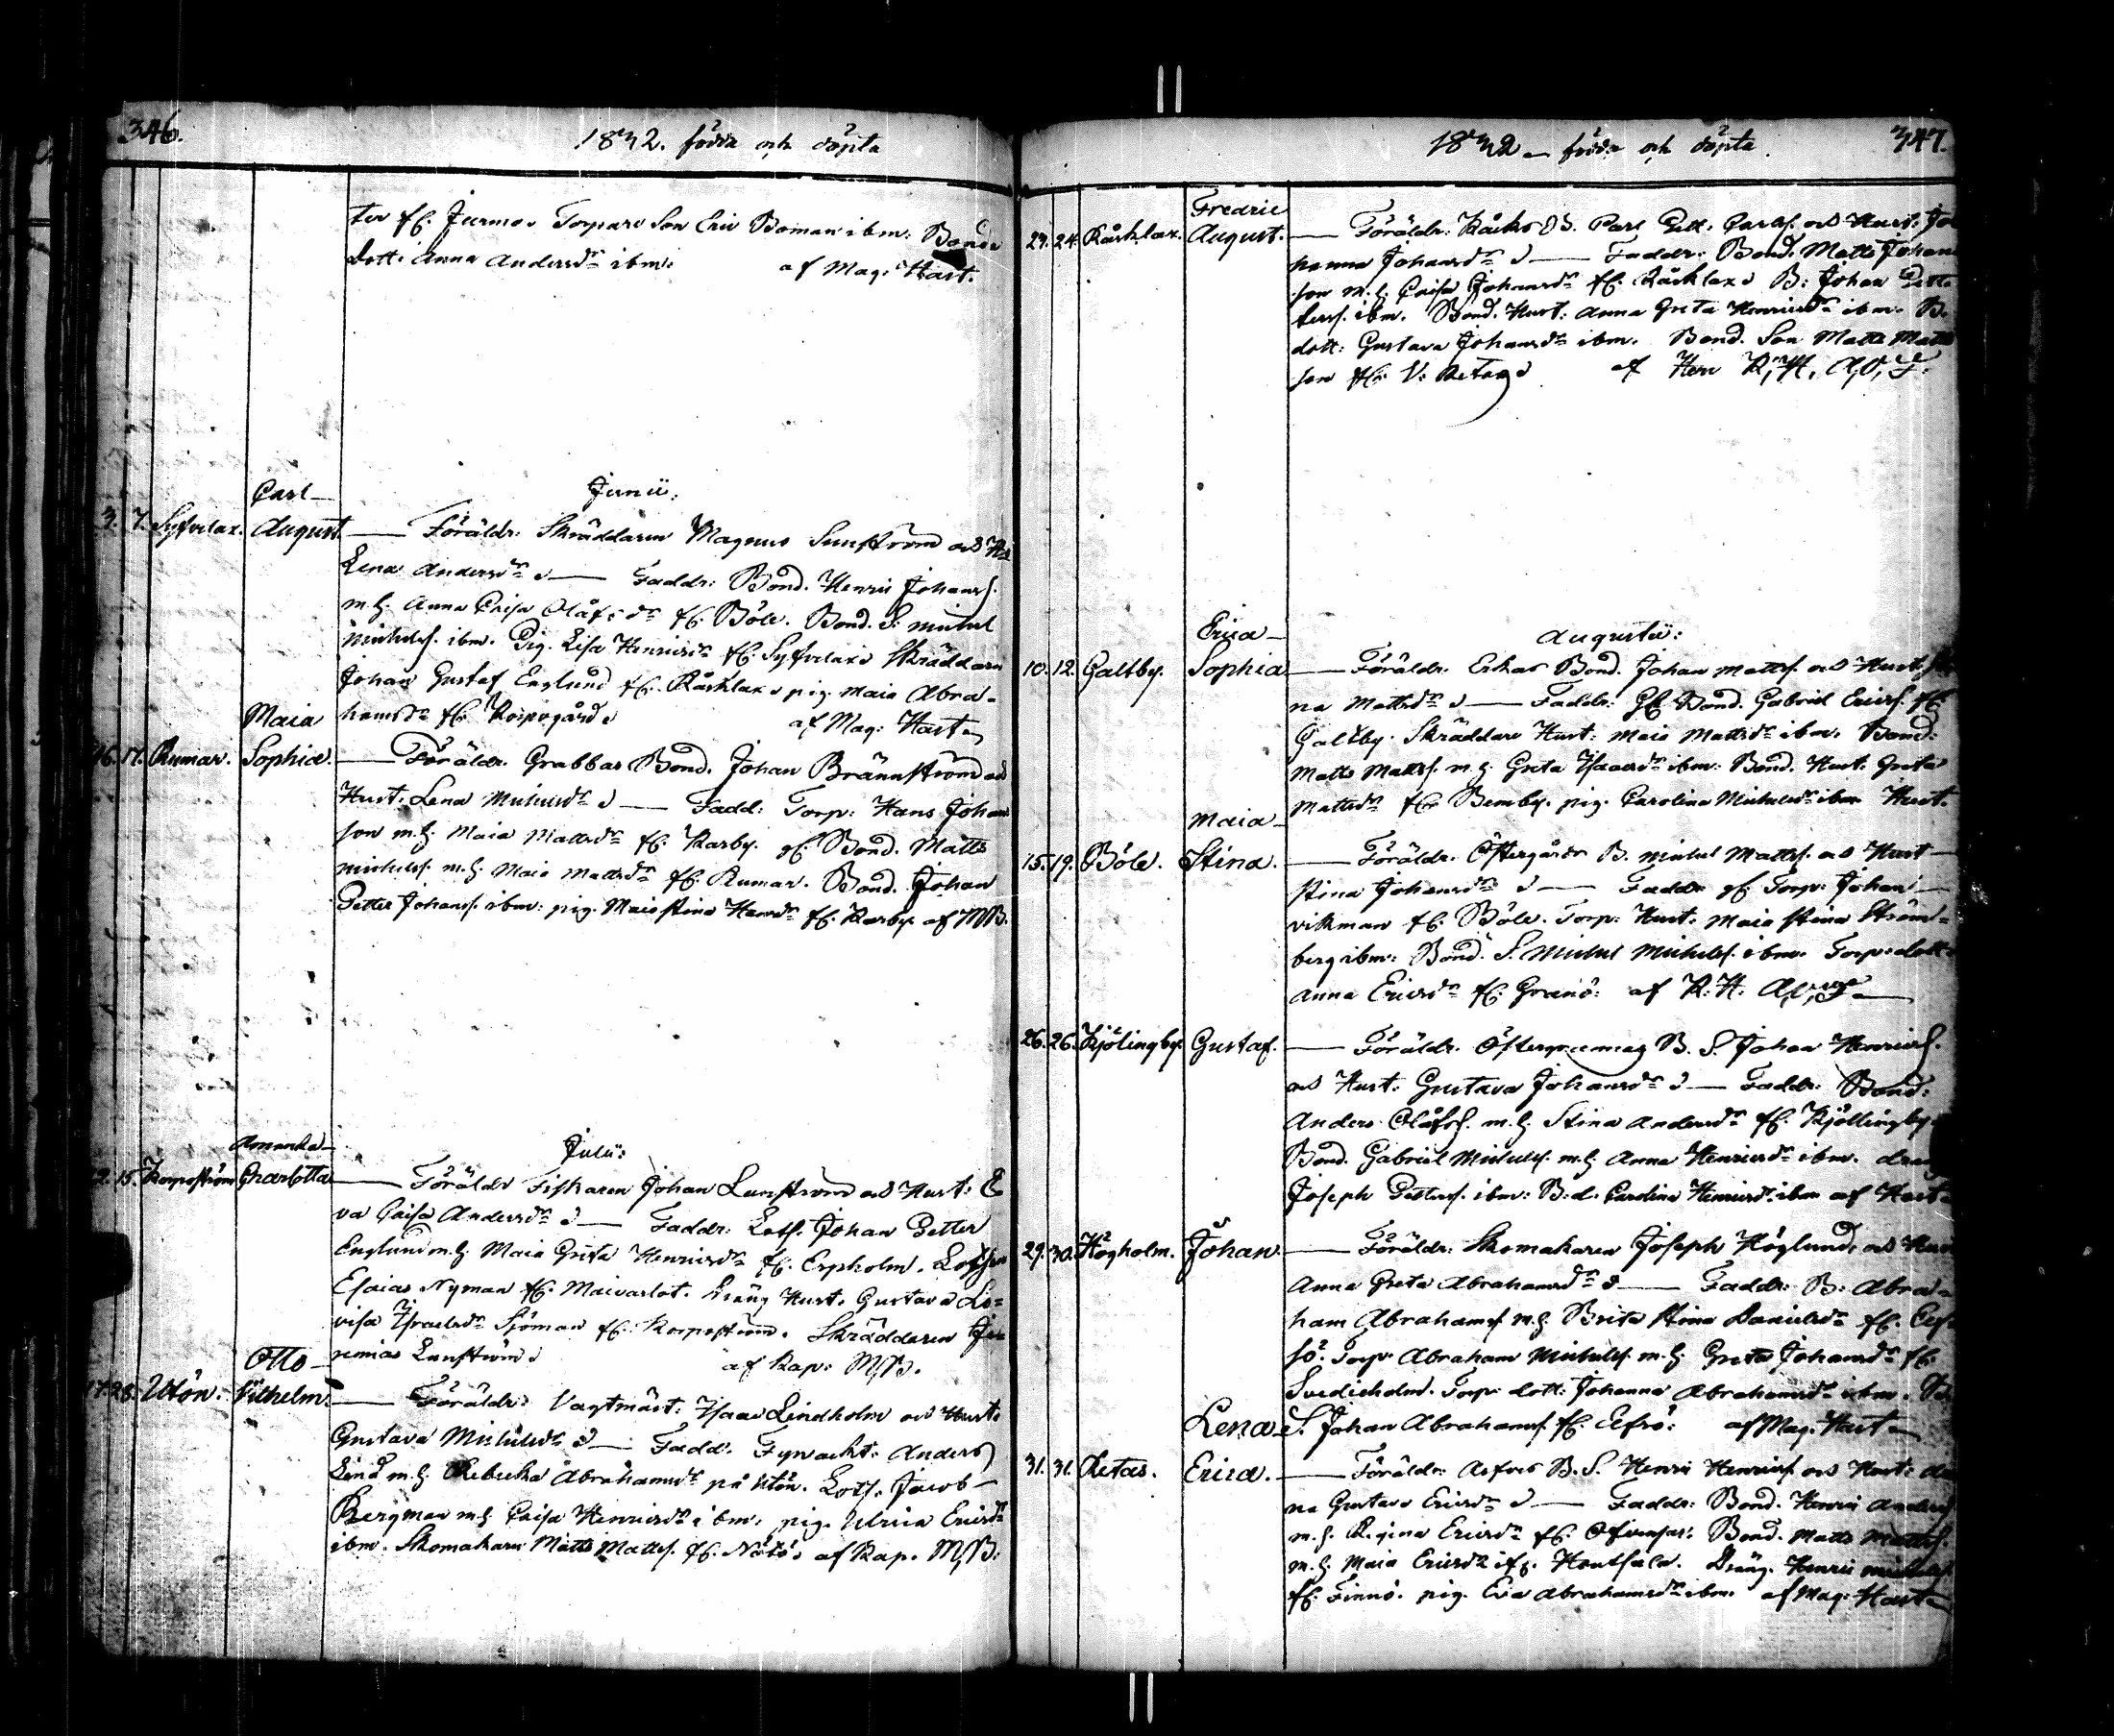 346.
1832. födde och döpta
ter fr. Jurmo. Torpare Son Eric Boman ibm: Bonde
dott: Anna Andersdr ibm: af Mag: Hast.
Junii:
Carl
3. 7. Syfvelax. August. Föräldr: Skräddaren Magnus Sunström och H.
Lena Andersdr Faddr: Bond. Henric Johanss.
m.h. Anna Caisa Olåfsdr fr. Böle. Bond. S. Michel
Michelss. ibm. Pig. Lisa Henricsdr fr. Syfvelax Skräddaren
Johan Gustaf Englund fr. Kårklax pig. Maia Abra-
hamsdr fr. Korpogård af Mag: Hast
Maia
16. 17. Rumar. Sophia. Föräldr. Grabbas Bond. Johan Brännström och
Hust. Lena Michelsdr Fadd: Torp: Hans Johan
son m.h. Maia Mattsdr fr. Karby. gl. Bond. Matts
Michelss. m.h. Maia Mattsdr fr. Rumar. Bond. Johan
Petter Johanss. ibm: pig. Maia Stina Hansdr fr. Karby af MB.
Julii:
Amanda
15. Korpoström Charlotta Föräldr Fiskaren Johan Lunström och Hust: E
va Caisa Andersdr Faddr: Lots. Johan Petter
Englund m.h. Maia Greta Henricsdr fr. Erpholm. Lotsen
Esaias Nyman fr. Maivarlot. Dräng Hust. Gustava Lo-
visa Israelsdr Sjöman fr. Korpoström. Skräddaren Je
remias Lunström af Kap: M,B.
Otto
17. 28. Utön. Vilhelm. Föräldr: Vagtmäst: Isaac Lindholm och Hust:
Gustava Michelsdr Fadd: Fyrvackt: Anders
Lind m.h. Rebecka Abrahamsdr på Utön. Lots. Jacob
Bergman m.h. Caisa Henricsdr ibm: pig. Ulrica Ericsdr
ibm. Skomakaren Matts Mattss. fr. Nötö. af Kap. M,B.
1832 födde och döpta 347.
Fredric
23. 24. Kårklax. August. Föräldr: Kåcks B. Carl Pett. Carlss. och Hust: Jo
hanna Johansdr Faddr: Bond. Matts Johan
son m.h. Caisa Johansdr fr. Kårklax B: Johan Pet
terss. ibm. Bond. Hust: Anna Greta Henricsdr ibm. B.
dott: Gustava Johansdr ibm. Bond. Son Matts Matts
son fr. V: Retas af Herr K,H, A,O, F.
Augusti:
Erica
10. 12. Galtby. Sophia Föräldr: Eckas Bond. Johan Mattss. och Hust.
na Mattsdr Faddr: Gl. Bond. Gabriel Ericss. fr.
Galtby. Skräddare Hust: Maia Mattsdr ibm. Bond:
Matts Mattss. m.h. Greta Isaacsdr ibm: Bond. Hust. Greta
Mattsdr fr. Bemby. pig. Carolina Michelsdr ibm Hast.
Maia
15. 19. Böle. Stina. Föräldr. Östergårds B. Michel Mattss. och Hust
Stina Johansdr Faddr gl. Torp: Johan
Vikman fr. Böle. Torp: Hust. Maia Stina Ström-
berg ibm: Bond. S. Michel Michelss. ibm. Torp: dott
Anna Ericsdr fr. Granö: af K: H: A,O, F
26. 26. Kjölingby. Gustaf. Föräldr. B. S. Johan Henricss.
och Hust: Gustava Johansdr Faddr: Bond:
Anders Olåfss. m.h. Stina Andersdr fr. Kjöllingby.
Bond. Gabriel Michelss. m.h. Anna Henricsdr ibm. dräng
Joseph Petterss. ibm: B: d: Carolina Henricsdr. ibm af Hast
29. 30. Högholm. Johan. Föräldr: Skomakaren Joseph Höglund, och Hust
Anna Greta Abrahamsdr Faddr: B: Abra-
ham Abrahamss. m.h. Brita Stina Danielsdr fr. Elf
sö. Torp: Abraham Michelss. m.h. Greta Johansdr fr.
Svedieholm. Torp: dott: Johanna Abrahamsdr ibm. B.
S. Johan Abrahamss. fr. Elfsö: af Mag: Hast
Lena
31. 31. Retas. Erica. Föräldr: B. S. Henric Henricss. och Hust:
na Gustava Ericsdr Faddr: Bond. Henric Anderss.
m.h. Regina Ericsdr fr. Bond. Matts Mattss.
m.h. Maia Ericsdr Dräng. Henric Michelss.
fr. Finnö. pig. Eva Abrahamsdr ibm. af Mag: Hast